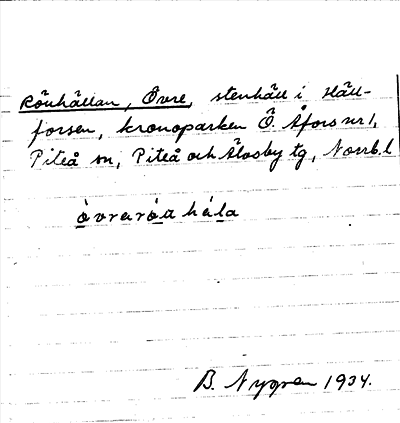 Rönhällan, Övre, stenhäll i Häll-
forsen, kronoparken Ö. Åfors nr 1,
Piteå sn, Piteå och Älvsby tg, Norrb. l
òvrarö́a há̀la
B. Nygren 1934.